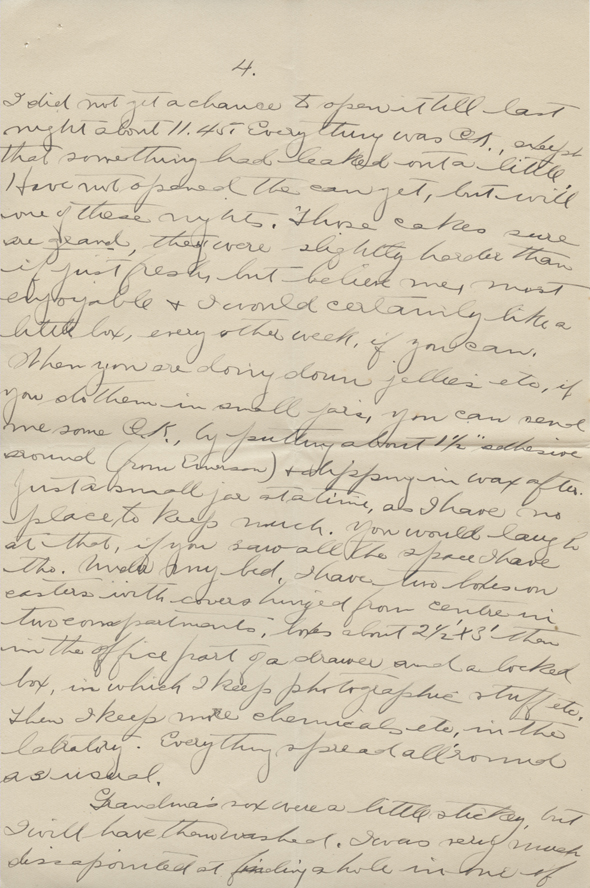 4.
I did not get a chance to open it till last
night about 11.45. Everything was O.K., except
that something had leaked onta little.
Have not opened the can yet, but will
one of these nights. Those cakes sure
are grand, they were slightly harder than
if just fresh, but believe me, most
enjoyable & I would certainly like a
little box, every other week, if you can.
When you are doing down jellies etc, if
you do them in small jars, you can send
me some O.K., by putting about 1½" adhesive
around (from Emerson) & dipping in wax after.
Just a small jar at a time, as I have no
place to keep much. You would laugh
at that, if you saw all the space I have
tho. Under my bed, I have two boxes on
casters with covers hinged from centre in
two compartments, boxes about 2½' x 3' then
in the office part of a drawer and a locked
box, in which I keep photographic stuff etc.
Then I keep more chemicals etc, in the
labratory. Everything spread all 'round
as usual.
Grandma's sox were a little stickey, but
I will have them washed. I was very much
dissapointed at finding a hole in one of